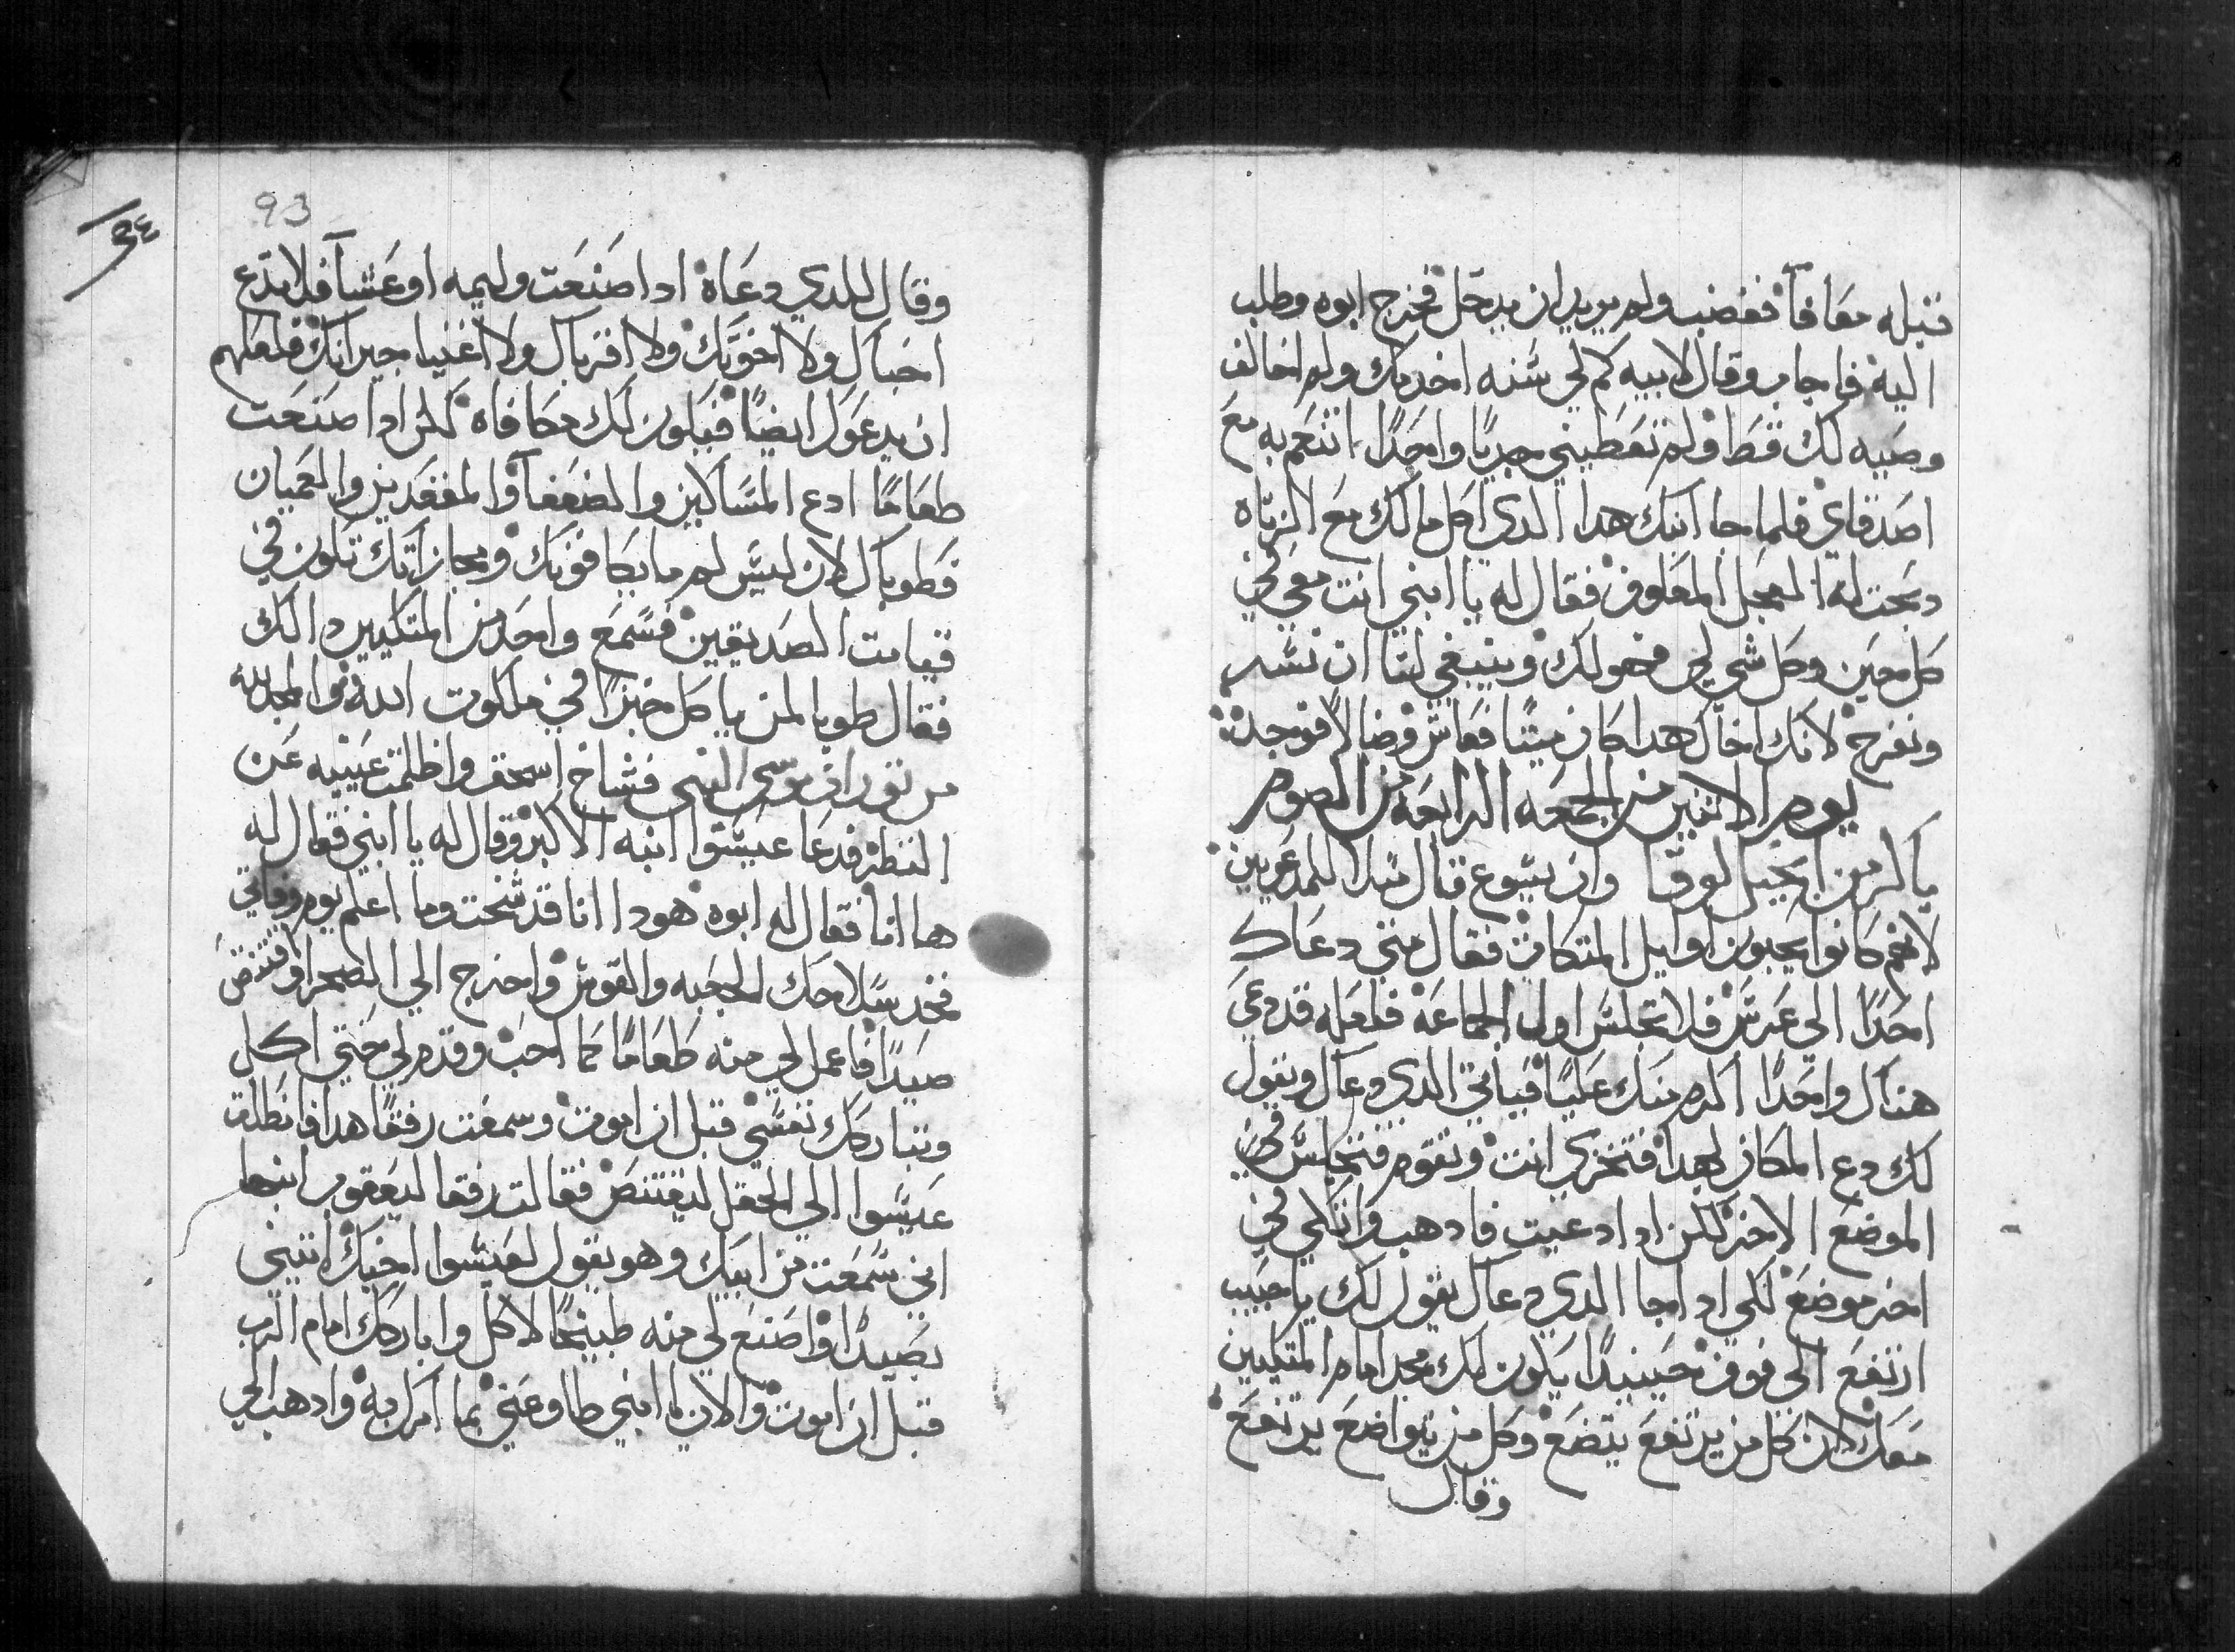 قبله معافاً فغضب ولم يريد ان يدخل فخرج ابوه وطلب
اليه فاجاب وقال لابيه كم لي سنه اخدمك ولم اخالف
وصيه لك قط ولم تعطيني جديًا واحدًا اتنعم به مع
اصدقاي فلما جا ابنك هدا الدي اكل مالك مع الزناه
دبحت له العجل المعلوف فقال له يا ابني انت معي في
كل حين وكل شي لي فهو لك وينبغي لنا ان نسر
ونفرح لانك اخاك هدا كان ميتًا فعاش وضالًا فوجد
يوم الاتنين من الجمعه الرابعه من الصوم
باكر من انجيل لوقا وان يسوع قال مثلا للمدعوين
لانهم كانوا يحبون اوايل المتكات فقال متى دعاك
احدًا الي عرس فلا تجلس اول الجماعه فلعله قد دعي
هناك واحدًا اكرم منك عليه فياتي الدي دعاك ويقول
لك دع المكان لهدا فتخزي انت وتقوم فتجلس في
الموضع الاخر لكن ادا دعيت فادهب واتكي في
اخر موضع لكي ادا جا الدي دعاك يقول لك يا حبيب
ارتفع الي فوق حينيدًا يكون لك مجد امام المتكيين
معك لان كل من يرتفع يتضع وكل من يتواضع يرتفع
وقال
93
٩٤
وقال للدي دعاه ادا صنعت وليمه او عشا فلا تدع
احباك ولا اخوتك ولا اقرباك ولا اغنيا جيرانك فلعلهم
ان يدعوك ايضًا فيكون لك مكافاه لكن ادا صنعت
طعامًا ادع المساكين والضعفا والمقعدين والعميان
فطوباك لان ليس لهم ما يكافونك ومجازاتك تكون في
قيامت الصديقين فسمع واحد من المتكيين دالك
فقال طوبا لمن ياكل خبزًا في ملكوت الله والمجد لله
من توراة موسى النبي فشاخ اسحق واظلمت عينيه عن
النظر فدعا عيسوا ابنه الاكبر وقال له يا ابني فقال له
هاانا فقال له ابوه هودا انا قد شخت وما اعلم يوم وفاتي
فخد سلاحك الجعبه والقوس واخرج الي الصحرا وقتنص
صيدًا فاعمل لي منه طعامًا كما احب وقدم لي حتي اكل
وتباركك نفسي قبل ان اموت وسمعت رفقا هدا فانطلق
عيسوا الي الحقل ليقتنص فقالت رفقا ليعقوب ابنها
اني سمعت من ابيك وهو يقول لعيسوا اخيك اتيني
بصيدًا واصنع لي منه طبيخًا لاكل واباركك امام الرب
قبل ان اموت والان يا ابني طاوعني بما امرك به وادهب الي